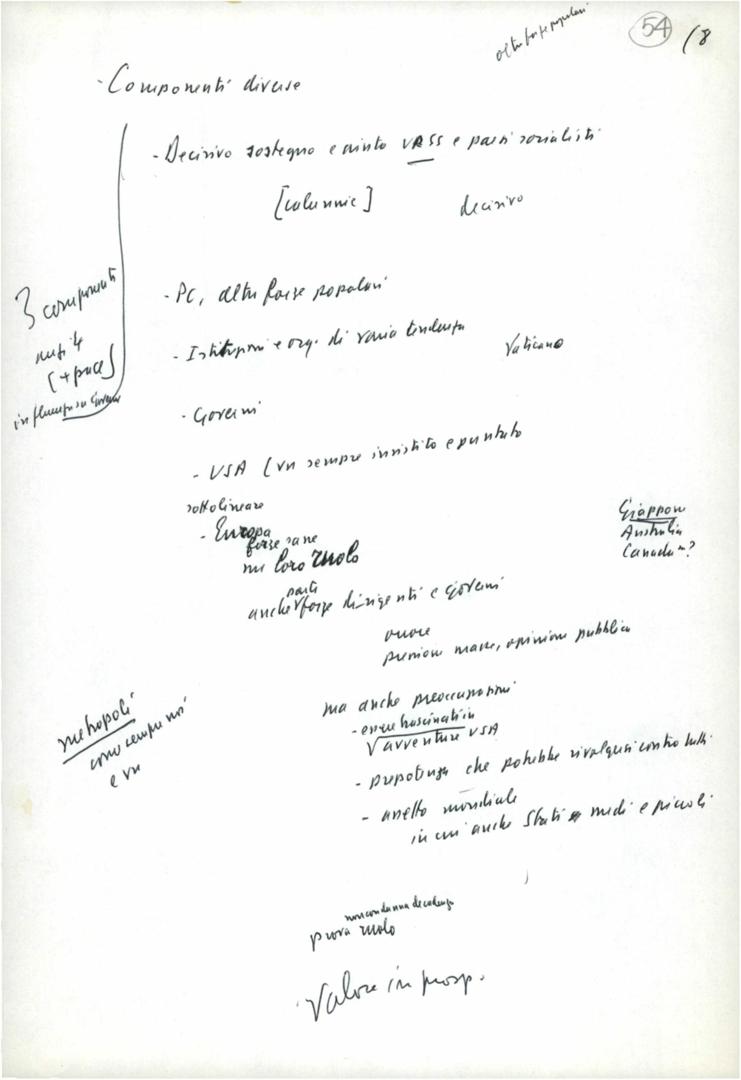 altre forze popolari
54 18
- Componenti diverse
- Decisivo sostegno e aiuto URSS e paesi socialisti
[calunnie] decisivo
3 componenti
[+ pace]
influenza su Governi
- PC, altre forze popolari
- Istituzioni e org. di varia tendenza Vaticano
- Governi
- USA (VN sempre insistito e puntato
sottolineare
- Europa
forze sane
nu loro ruolo
Giappone
Australia
Canada ?
parti
anche forze dirigenti e Governi
onore
pressione masse, opinione pubblica
metropoli
come sempre noi
e VN
ma anche preoccupazioni
- essere trascinati in
avventure USA
- prepotenza che potrebbe rivolgersi contro tutti
- assetto mondiale
in cui anche Stati medi e piccoli
non condanna decadenza
prova ruolo
Valore in prosp.